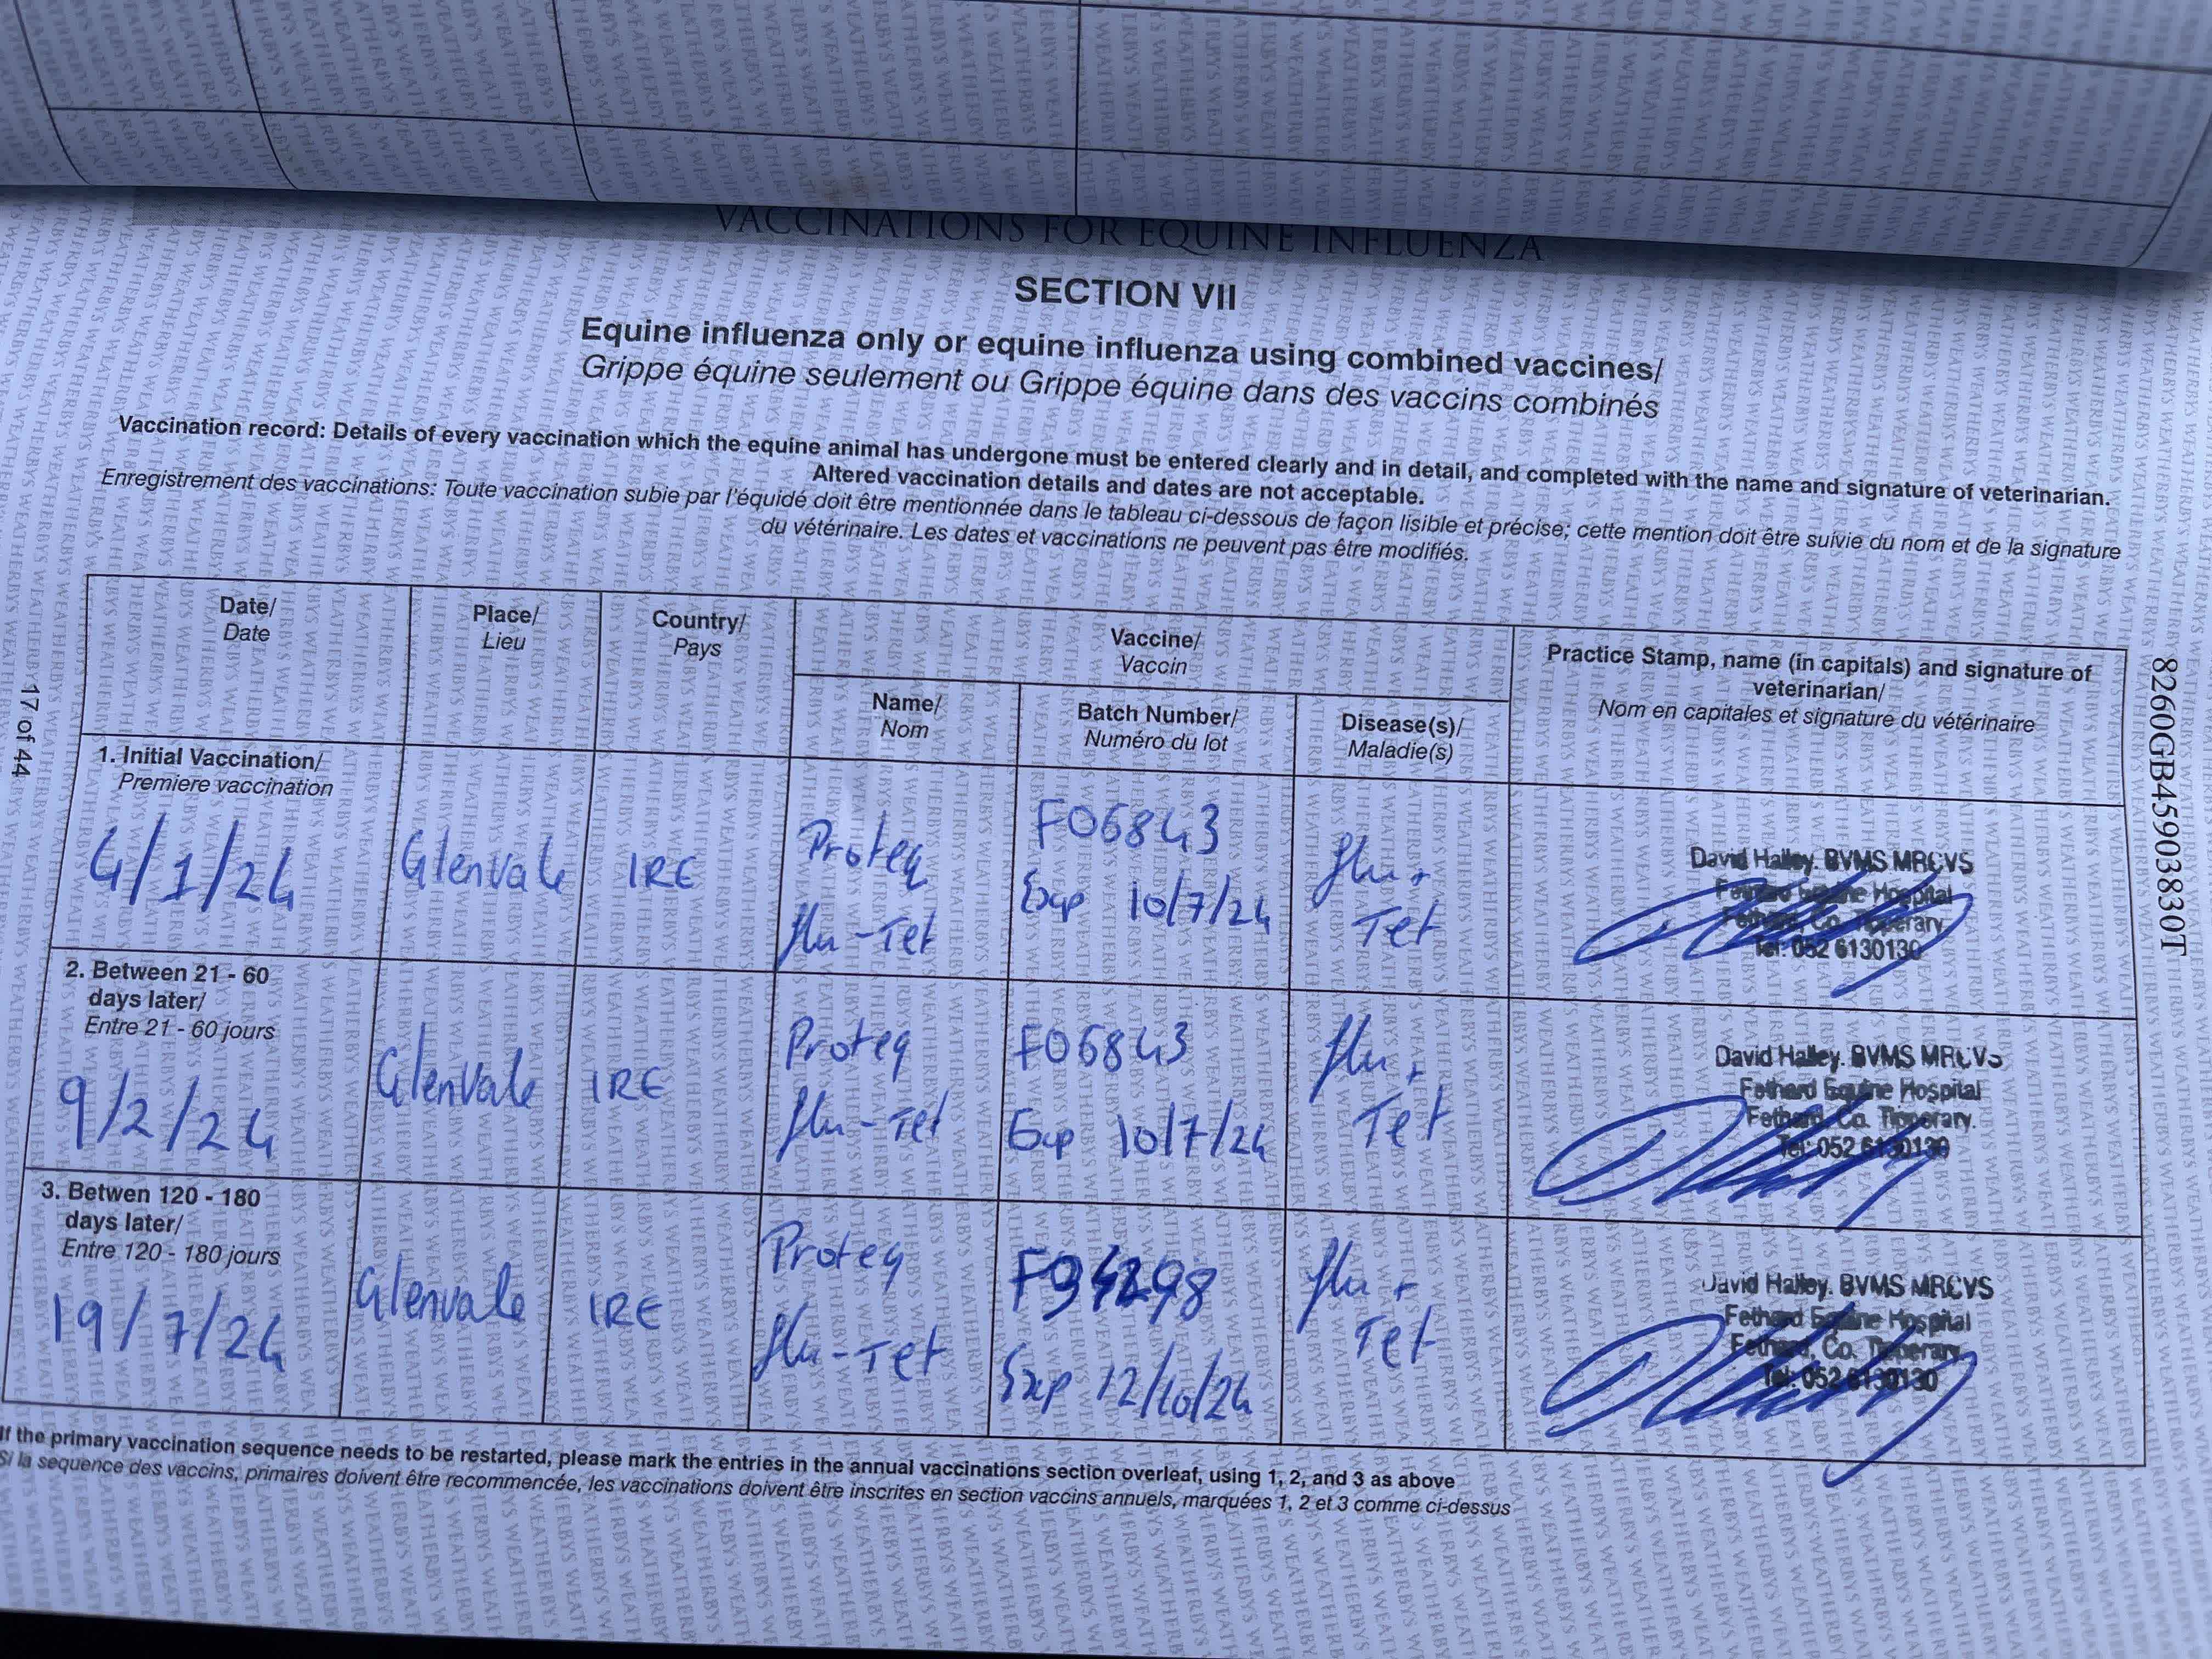 VACCINATIONS FOR EQUINE INFLUENZA
SECTION VII
Equine influenza only or equine influenza using combined vaccines/
Grippe équine seulement ou Grippe équine dans des vaccins combinés
Vaccination record: Details of every vaccination which the equine animal has undergone must be entered clearly and in detail, and completed with the name and signature of veterinarian.
Altered vaccination details and dates are not acceptable.
Enregistrement des vaccinations: Toute vaccination subie par l'équidé doit être mentionnée dans le tableau ci-dessous de façon lisible et précise; cette mention doit être suivie du nom et de la signature
du vétérinaire. Les dates et vaccinations ne peuvent pas être modifiés.
Date/
Date
Place/
Lieu
Country/
Pays
Vaccine/
Vaccin
Name/
Nom
Batch Number/
Numéro du lot
Disease(s)/
Maladie(s)
Practice Stamp, name (in capitals) and signature of
veterinarian/
Nom en capitales et signature du vétérinaire
1. Initial Vaccination/
Premiere vaccination
4/1/24
Glenvale
IRE
Proteq
flu-Tet
F06843
Exp 10/7/24
flu +
Tet
David Halley. BVMS MRCVS
Fethard Equine Hospital
Fethard, Co. Tipperary.
Tel: 052 6130130
2. Between 21 - 60
days later/
Entre 21 - 60 jours
9/2/24
Glenvale
IRE
Proteq
flu-Tet
F06843
Exp 10/7/24
flu +
Tet
David Halley. BVMS MRCVS
Fethard Equine Hospital
Fethard, Co. Tipperary.
Tel: 052 6130130
3. Betwen 120 - 180
days later/
Entre 120 - 180 jours
19/7/24
Glenvale
IRE
Proteq
flu-Tet
Exp 12/10/24
flu +
Tet
David Halley. BVMS MRCVS
Fethard Equine Hospital
Fethard, Co. Tipperary.
Tel: 052 6130130
If the primary vaccination sequence needs to be restarted, please mark the entries in the annual vaccinations section overleaf, using 1, 2, and 3 as above
Si la sequence des vaccins, primaires doivent être recommencée, les vaccinations doivent être inscrites en section vaccins annuels, marquées 1, 2 et 3 comme ci-dessus
17 of 44
8260GB45903830T